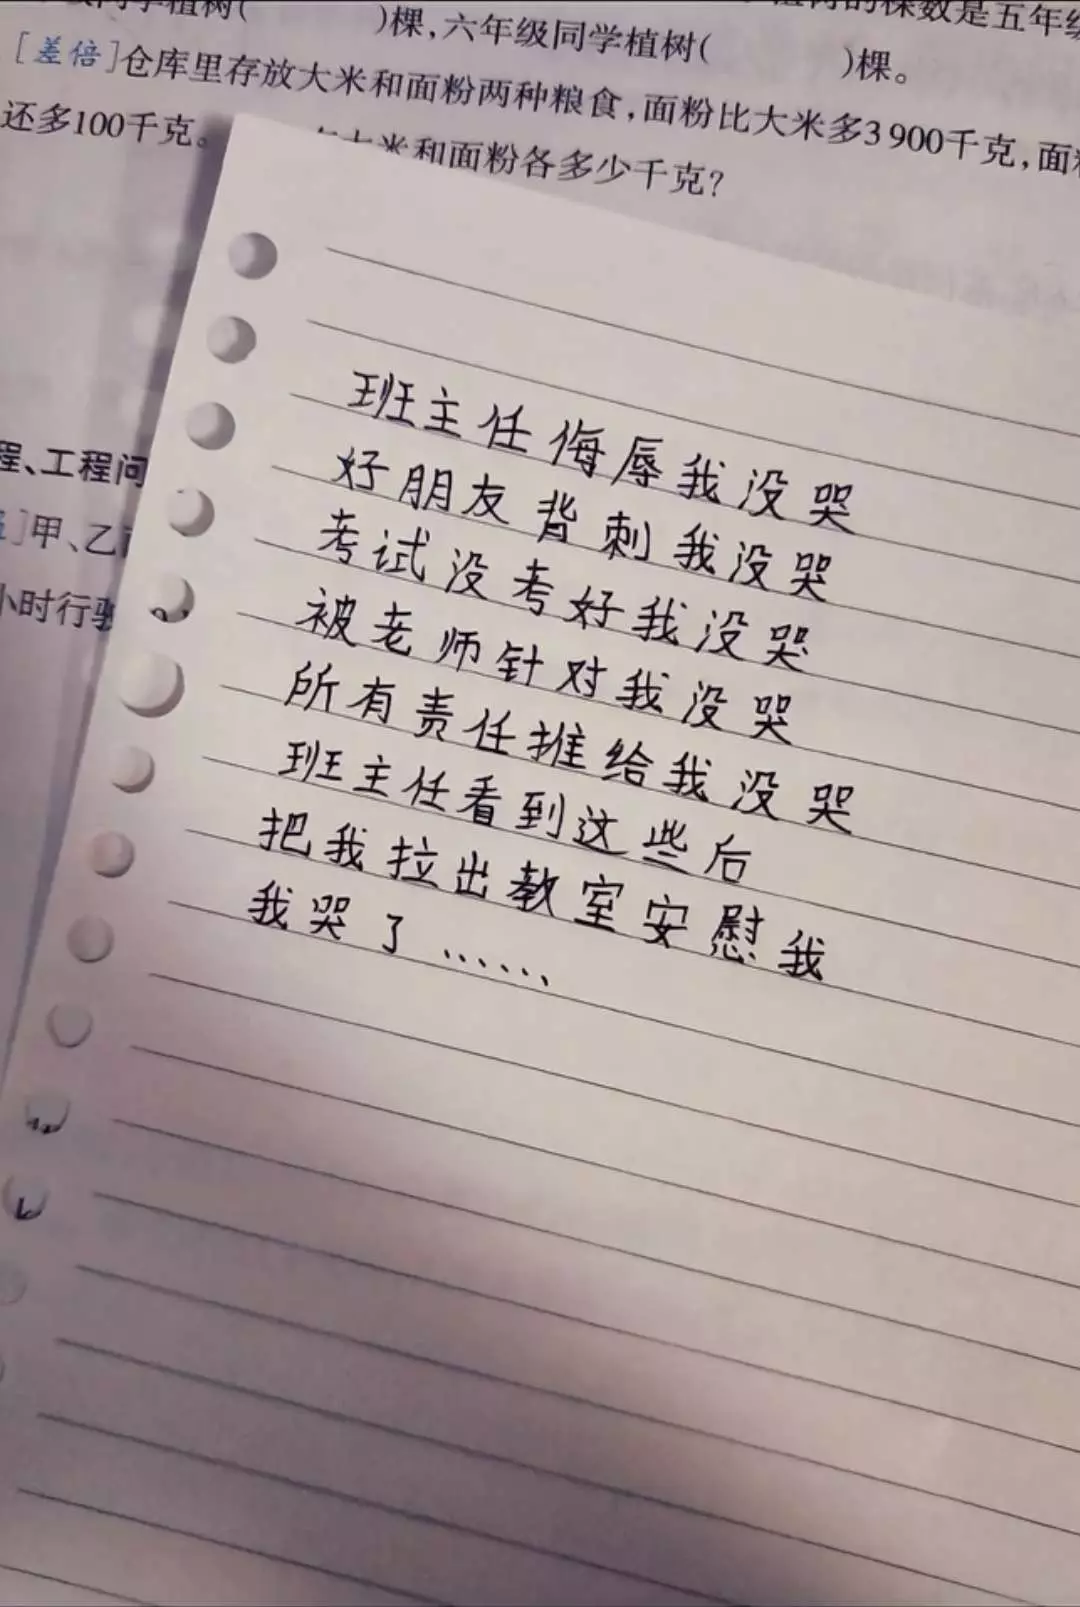 )棵,六年级同学植树( )棵。
[差倍]仓库里存放大米和面粉两种粮食,面粉比大米多3900千克,面
还多100千克。
大米和面粉各多少千克?
程、工程问
]甲、乙
小时行驶
班主任侮辱我没哭
好朋友背刺我没哭
考试没考好我没哭
被老师针对我没哭
所有责任推给我没哭
班主任看到这些后
把我拉出教室安慰我
我哭了……